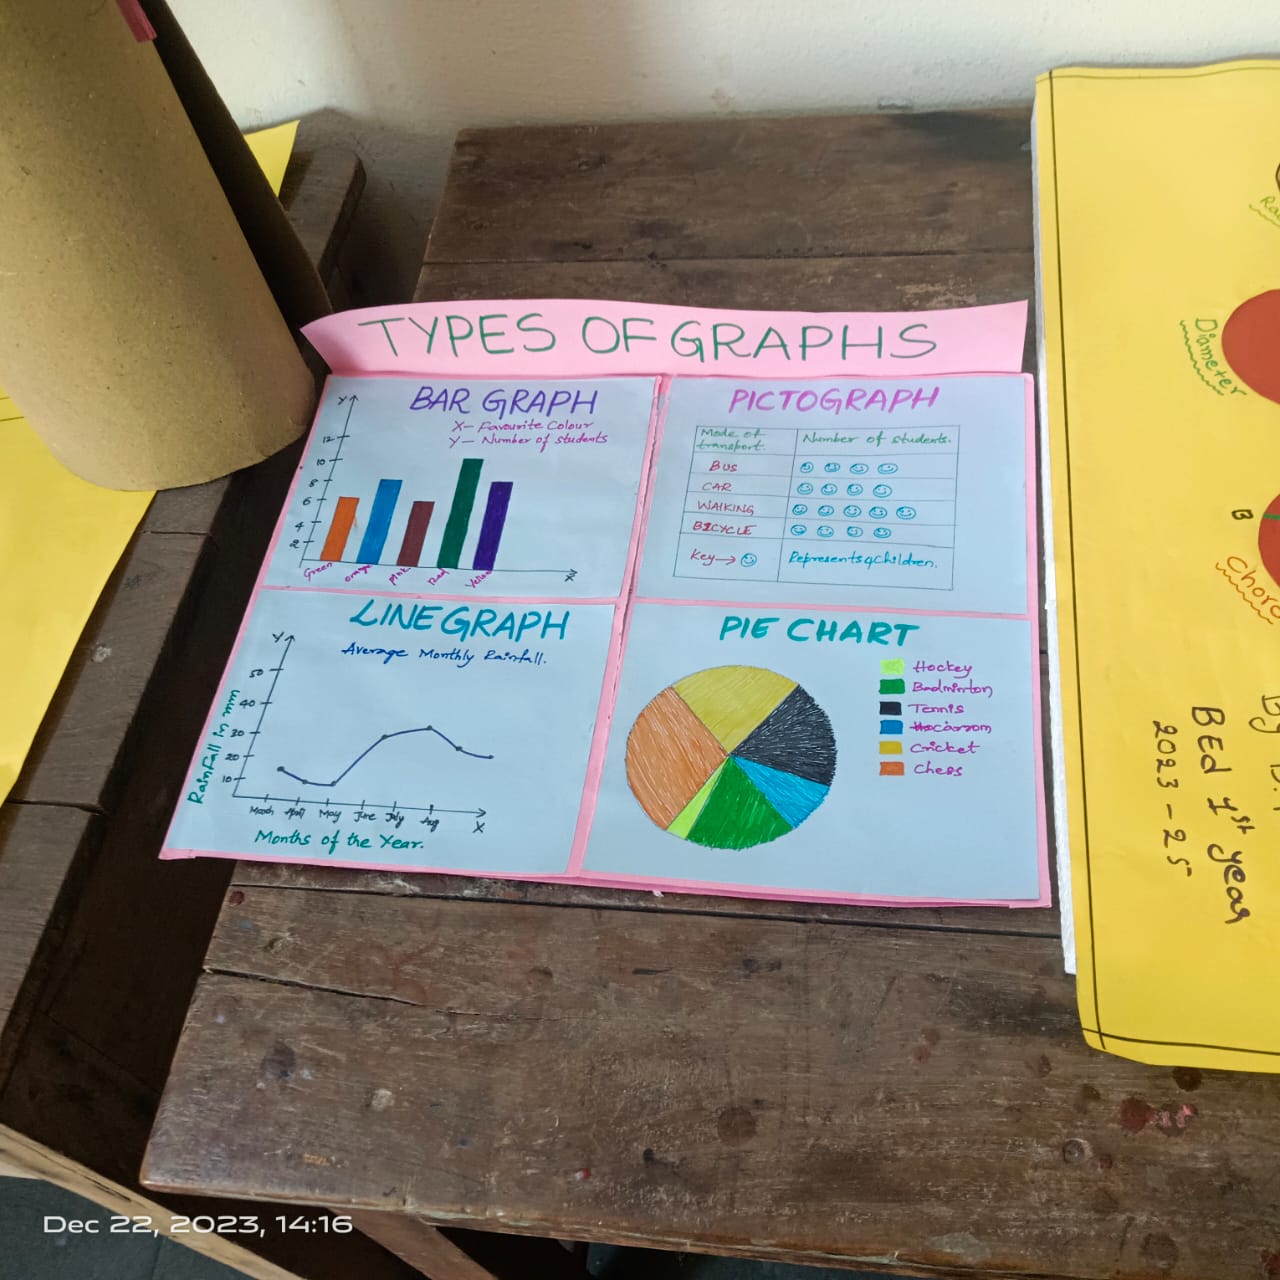 TYPES OF GRAPHS
BAR GRAPH
X - Favourite Colour
Y - Number of students
Y
12
10
8
6
4
2
Green Orange Pink Red Yellow
X
PICTOGRAPH
Mode of transport. Number of students.
BUS
CAR
WALKING
BICYCLE
Key→ Represents 4 children.
LINE GRAPH
Average Monthly Rainfall.
Y
50
40
30
20
10
Rainfall in mm
March April May June July Aug
X
Months of the Year.
PIE CHART
Hockey
Badminton
Tennis
Carrom
Cricket
Chess
Diameter
B
Chord
By
BEd 1st year
2023 - 25
Dec 22, 2023, 14:16